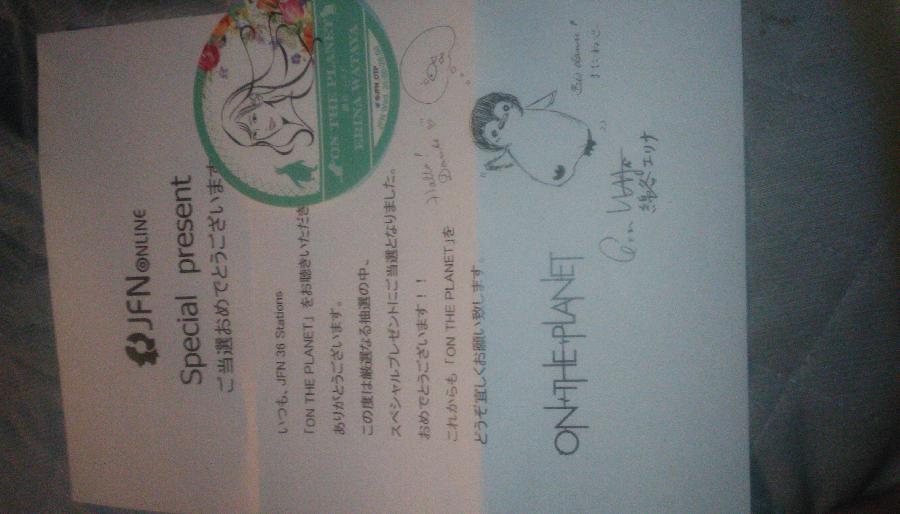 JFN ONLINE
Special present
ご当選おめでとうございます
いつも、JFN 36 Stations
「ON THE PLANET」をお聴きいただき
ありがとうございます。
この度は厳選なる抽選の中、
スペシャルプレゼントにご当選となりました。
おめでとうございます！！
これからも「ON THE PLANET」を
どうぞ宜しくお願い致します。
ON THE PLANET
ON THE PLANET
BY
ERINA WATAYA
Hallo!
Danke
綿谷エリナ